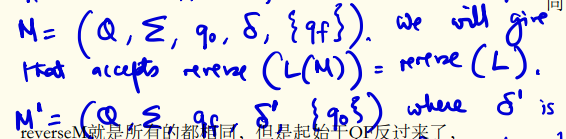 同
M = (Q, Σ, q₀, δ, {qf}). We will give
that accepts reverse (L(M)) = reverse (L).
M' = (Q, Σ, qf, δ', {q₀}) where δ' is
reverseM就是所有的都相同，但是起始十OF反过来了，